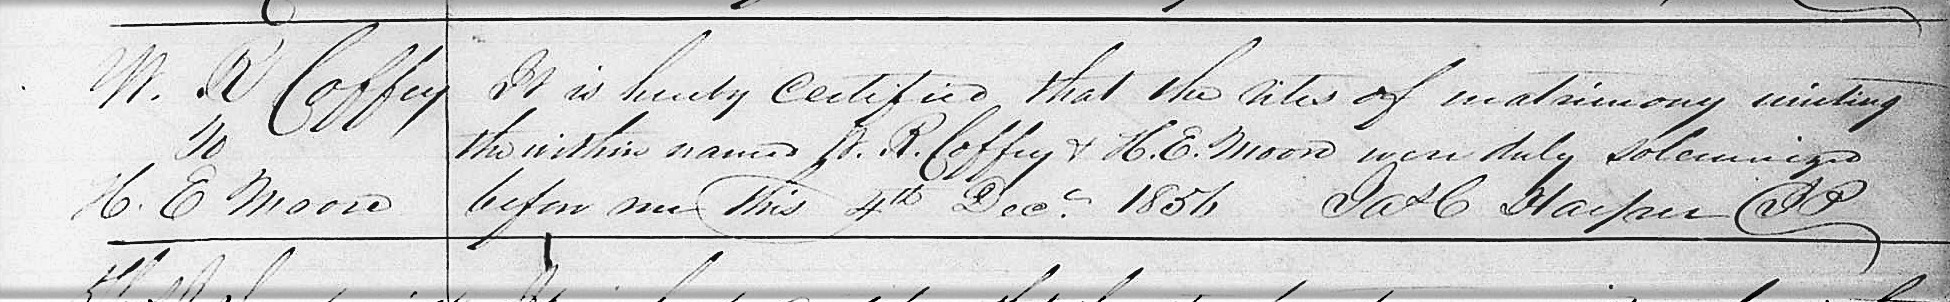 W. R Coffey
to
H. E Moore
It is hereby Certified that the rites of matrimony uniting
the within named W. R. Coffey & H. E. Moore were duly solemnized
before me this 4th Decr 1856 Jas C Harper JP